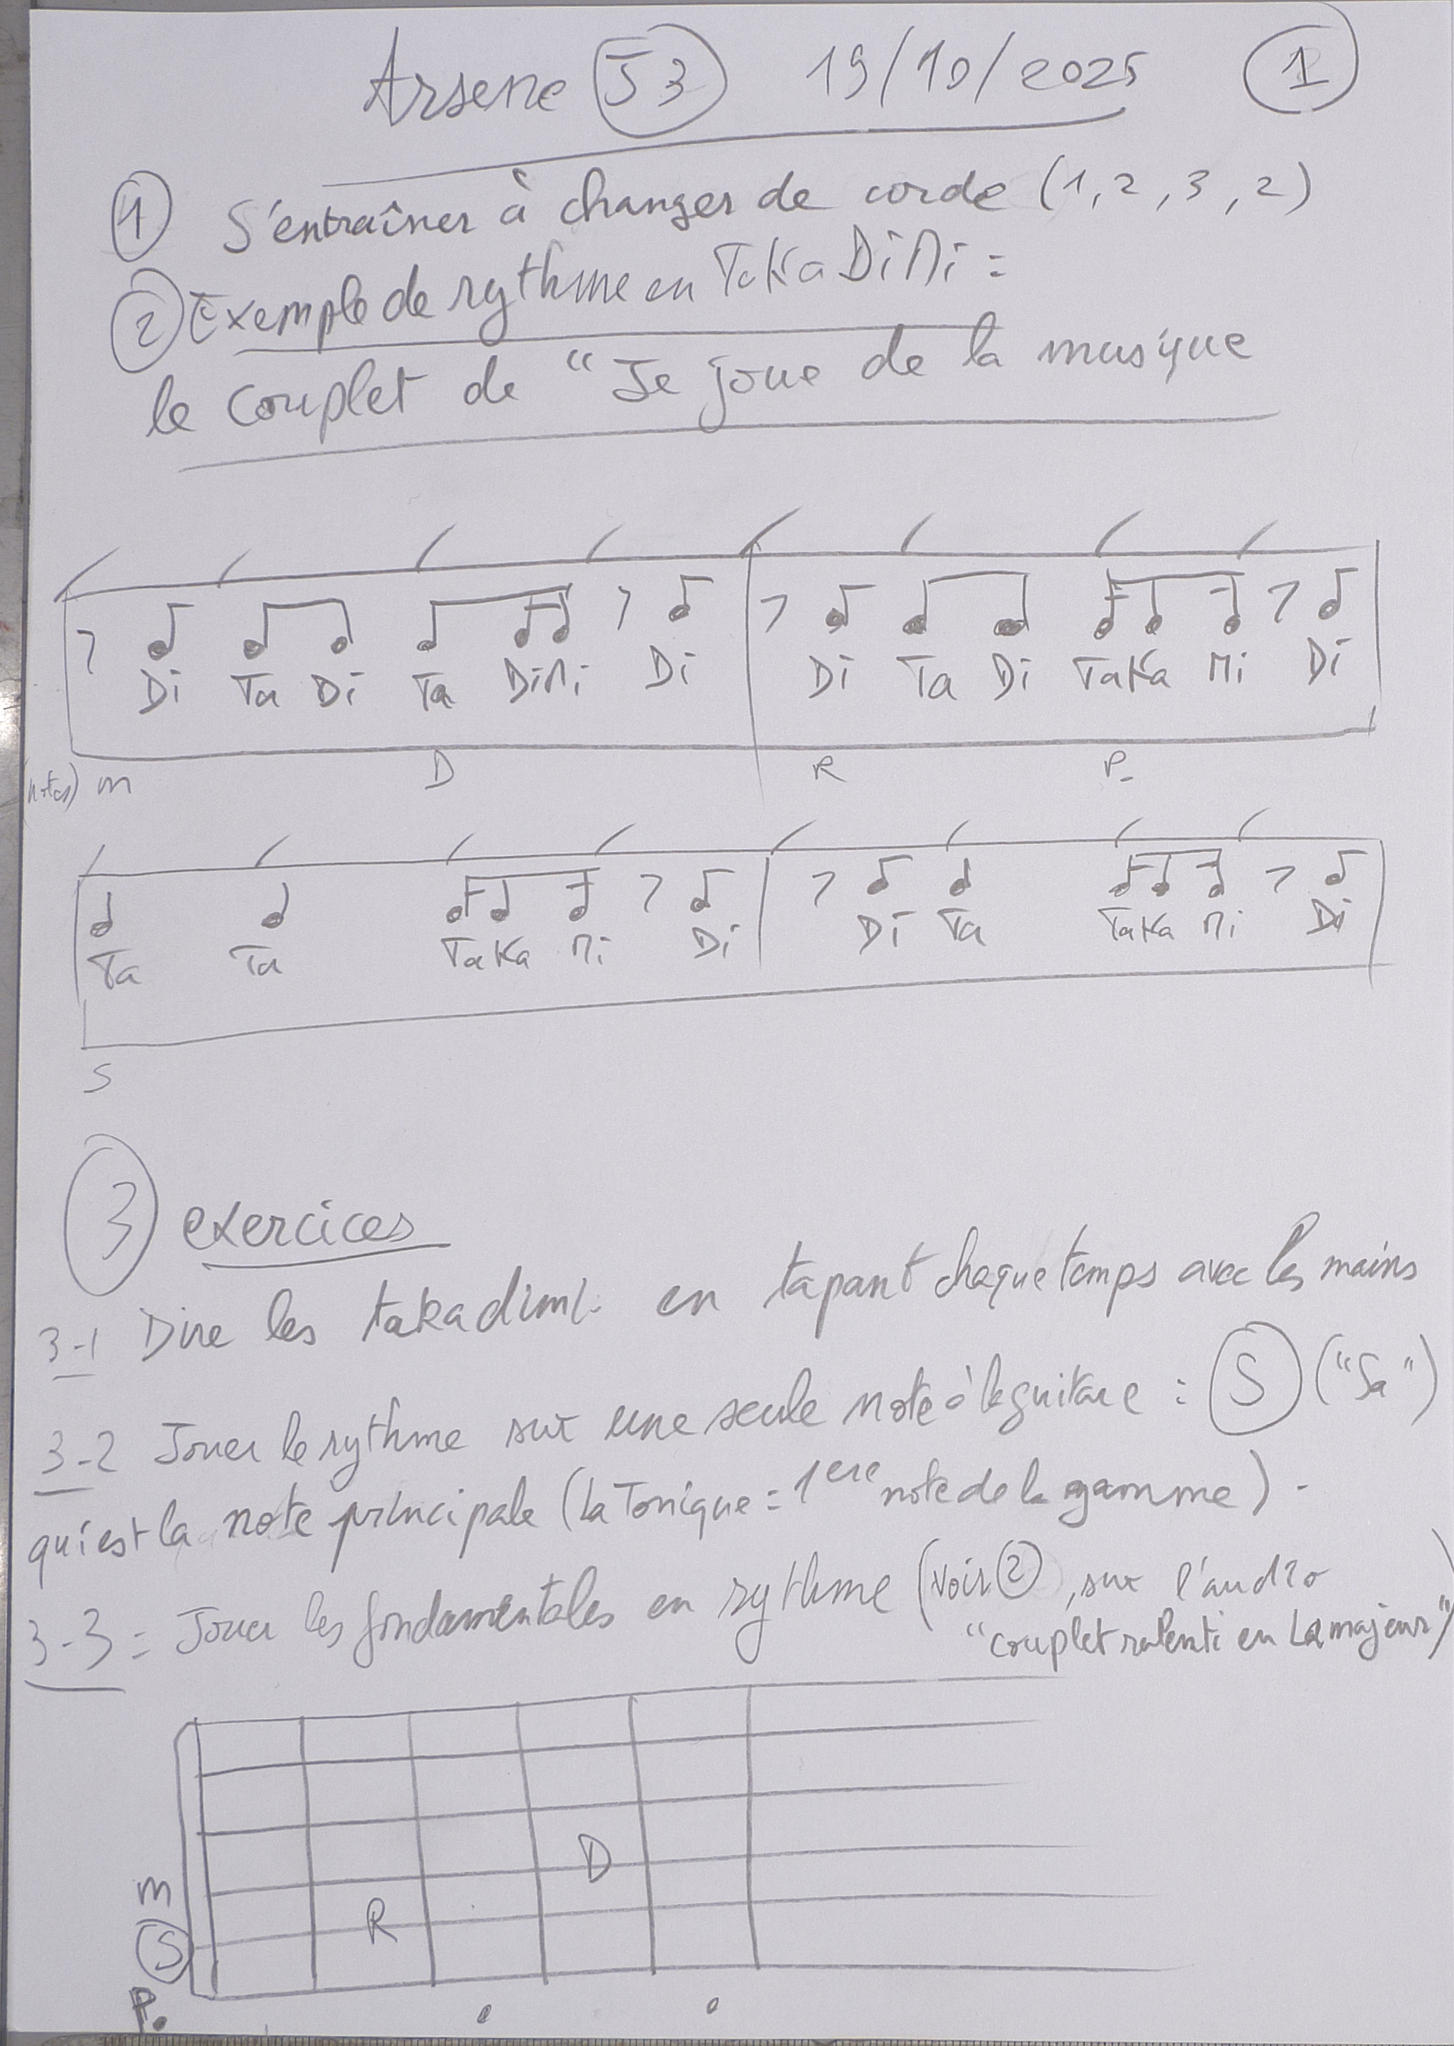 Arsene J3 19/10/2025 1
1 S'entraîner à changer de corde (1, 2, 3, 2)
2 Exemple de rythme en TaKaDiMi :
le couplet de "Je joue de la musique
Di Ta Di Ta DiMi Di Di Ta Di TaKa Mi Di
(notes) m D R P.
Ta Ta TaKa Mi Di Di Ta TaKa Mi Di
S
3 exercices
3-1 Dire les takadimi. en tapant chaque temps avec les mains
3-2 Jouer le rythme sur une seule note à la guitare : S ("Sa")
qui est la note principale (la Tonique = 1ere note de la gamme).
3-3 = Jouer les fondamentales en rythme (voir 2, sur l'audio
"couplet ralenti en La majeur")
D
m
R
S
P.